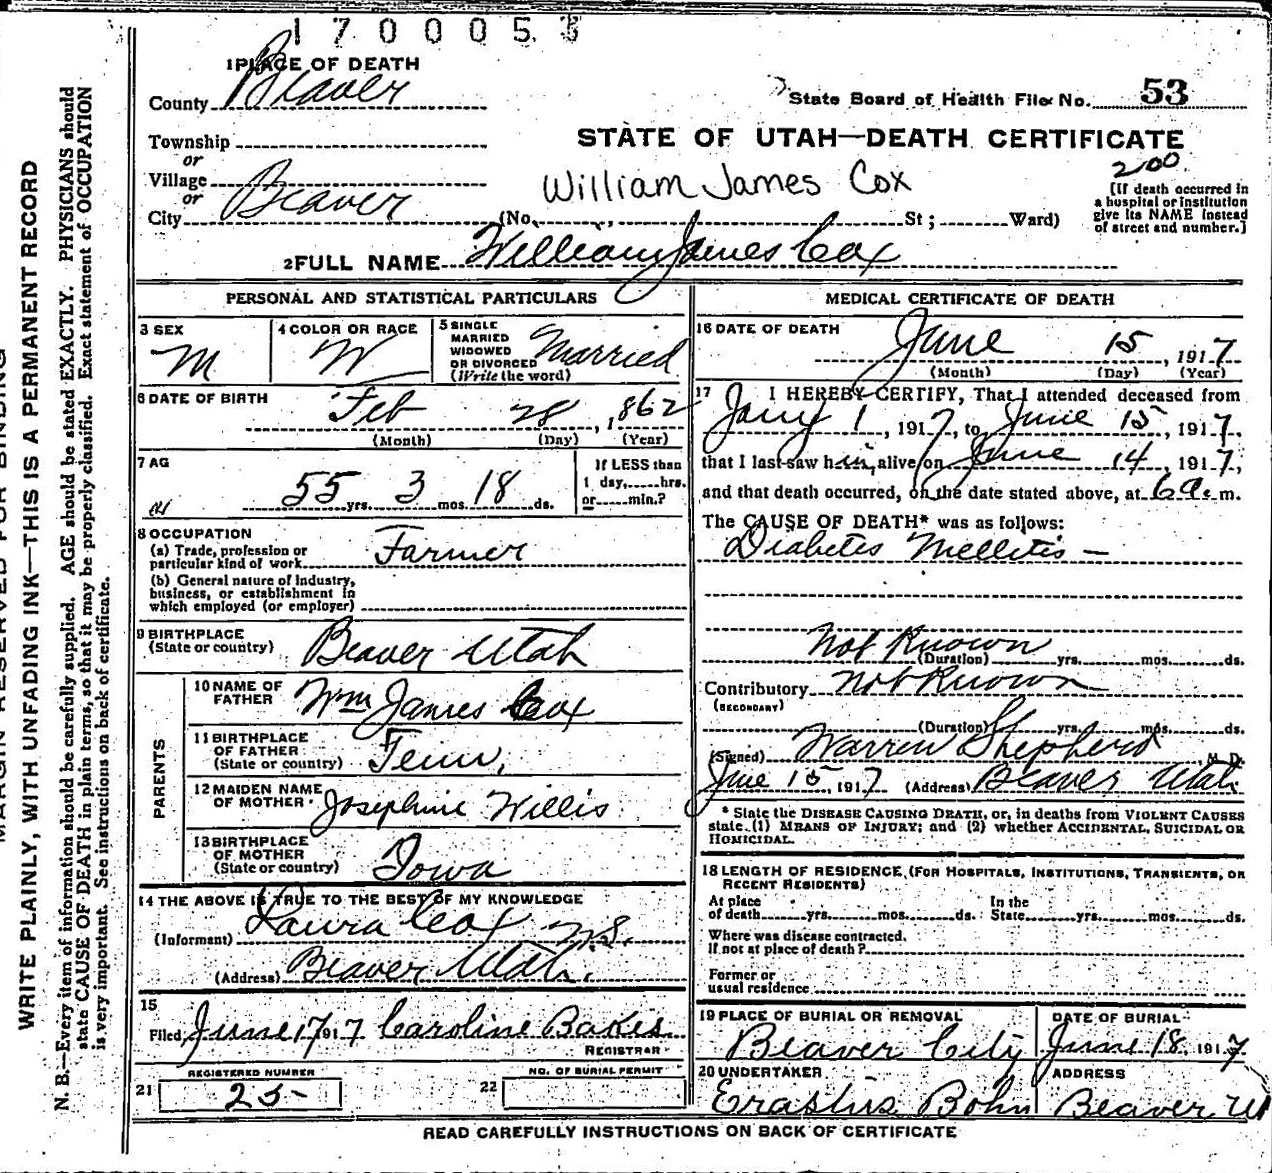 1700053
1 PLACE OF DEATH
County Beaver
State Board of Health File No. 53
STATE OF UTAH—DEATH CERTIFICATE
Township
or
Village
or
City Beaver
William James Cox
200
(No. St; Ward)
[If death occurred in
a hospital or institution
give its NAME instead
of street and number.]
2 FULL NAME William James Cox
PERSONAL AND STATISTICAL PARTICULARS
3 SEX
M
4 COLOR OR RACE
W
5 SINGLE
MARRIED
WIDOWED
OR DIVORCED
(Write the word)
Married
6 DATE OF BIRTH
Feb 28, 1862
(Month) (Day) (Year)
7 AG
55 yrs. 3 mos. 18 ds.
If LESS than
1 day, hrs.
or min.?
8 OCCUPATION
(a) Trade, profession or
particular kind of work Farmer
(b) General nature of Industry,
business, or establishment in
which employed (or employer)
9 BIRTHPLACE
(State or country) Beaver Utah
PARENTS
10 NAME OF
FATHER Wm James Cox
11 BIRTHPLACE
OF FATHER
(State or country) Tenn.
12 MAIDEN NAME
OF MOTHER Josephine Willis
13 BIRTHPLACE
OF MOTHER
(State or country) Iowa
14 THE ABOVE IS TRUE TO THE BEST OF MY KNOWLEDGE
(Informant) Laura Cox
(Address) Beaver Utah.
15
Filed June 17 1917 Caroline Bakes
REGISTRAR
REGISTERED NUMBER
21 25-
NO. OF BURIAL PERMIT
22
MEDICAL CERTIFICATE OF DEATH
16 DATE OF DEATH
June 15, 1917
(Month) (Day) (Year)
17 I HEREBY CERTIFY, That I attended deceased from
Jany 1, 1917, to June 15, 1917,
that I last saw him alive on June 14, 1917,
and that death occurred, on the date stated above, at 6 a. m.
The CAUSE OF DEATH* was as follows:
Diabetes Mellitis —
Not Known
(Duration) yrs. mos. ds.
Contributory Not Known
(SECONDARY)
(Duration) yrs. mos. ds.
(Signed) Warren Shepherd, M. D.
June 15, 1917 (Address) Beaver Utah
* State the DISEASE CAUSING DEATH, or, in deaths from VIOLENT CAUSES
state (1) MEANS OF INJURY; and (2) whether ACCIDENTAL, SUICIDAL OR
HOMICIDAL.
18 LENGTH OF RESIDENCE (FOR HOSPITALS, INSTITUTIONS, TRANSIENTS, OR
RECENT RESIDENTS)
At place
of death yrs. mos. ds.
In the
State yrs. mos. ds.
Where was disease contracted.
If not at place of death?
Former or
usual residence
19 PLACE OF BURIAL OR REMOVAL
Beaver City
DATE OF BURIAL
June 18, 1917
20 UNDERTAKER
Erastus Bohn
ADDRESS
Beaver U
READ CAREFULLY INSTRUCTIONS ON BACK OF CERTIFICATE
MARGIN RESERVED FOR BINDING
WRITE PLAINLY, WITH UNFADING INK—THIS IS A PERMANENT RECORD
N. B.—Every item of information should be carefully supplied. AGE should be stated EXACTLY. PHYSICIANS should
state CAUSE OF DEATH in plain terms, so that it may be properly classified. Exact statement of OCCUPATION
is very important. See instructions on back of certificate.